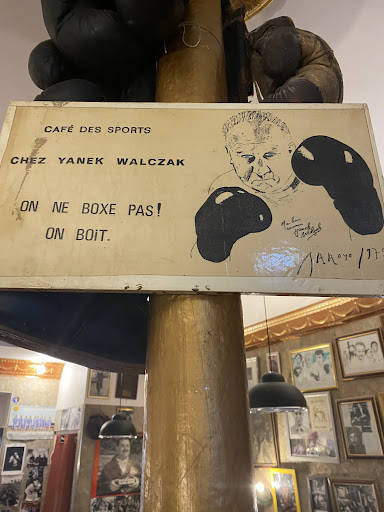 CAFÉ DES SPORTS
CHEZ YANEK WALCZAK
ON NE BOXE PAS!
ON BOIT.
ARROYO/197